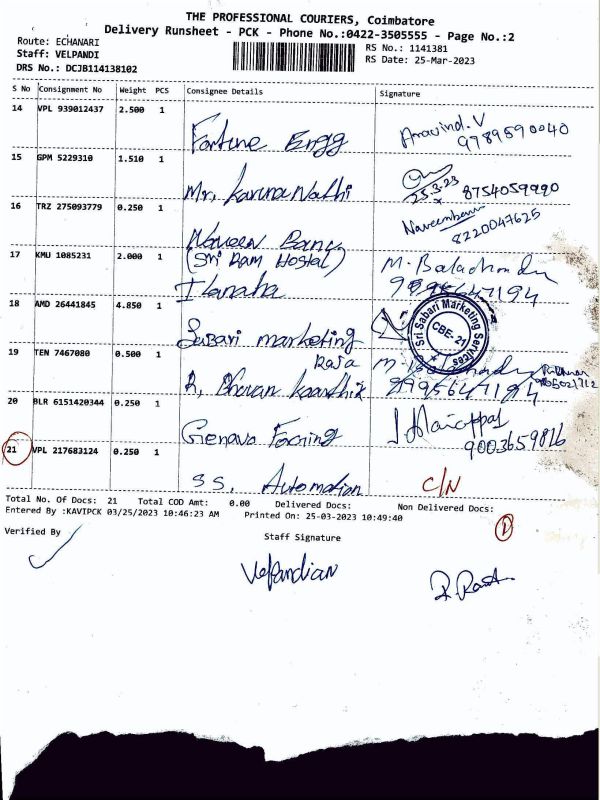 THE PROFESSIONAL COURIERS, Coimbatore
Delivery Runsheet - PCK - Phone No.:0422-3505555 - Page No.:2
Route: ECHANARI
Staff: VELPANDI
DRS No.: DCJB114138102
RS No.: 1141381
RS Date: 25-Mar-2023
S No Consignment No Weight PCS Consignee Details Signature
14 VPL 939012437 2.500 1
Fortune Engg
Aravind.V
9789590040
15 GPM 5229310 1.510 1
Mr. Karuna Nathi
25.3.23 8754059990
16 TRZ 275093779 0.250 1
Naveen
8220047625
17 KMU 1085231 2.000 1
(Sri Ram Hostel)
18 AMD 26441845 4.850 1
Sabari marketing
Sri Sabari Marketing Services
CBE-21
19 TEN 7467080 0.500 1
Raja
20 BLR 6151420344 0.250 1
9003659816
21 VPL 217683124 0.250 1
SS. Automation
C/N
Total No. Of Docs: 21 Total COD Amt: 0.00 Delivered Docs: Non Delivered Docs:
Entered By :KAVIPCK 03/25/2023 10:46:23 AM Printed On: 25-03-2023 10:49:40
1
Verified By
Staff Signature
Velpandian